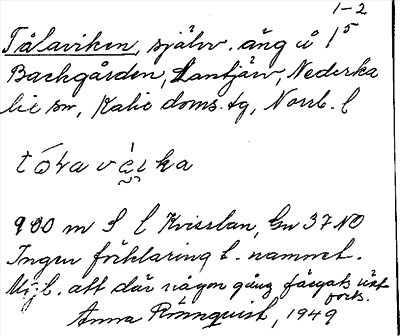 1-2
Tålaviken, själv. äng å 1⁵
Backgården, Lantjärv, Nederka
lix sn, Kalix doms. tg, Norrb. l
900 m S l Kvisslan, Gn 37 NO
Ingen förklaring t. namnet.
Möjl. att där någon gång färgats växt
Anna Rönnquist, 1949